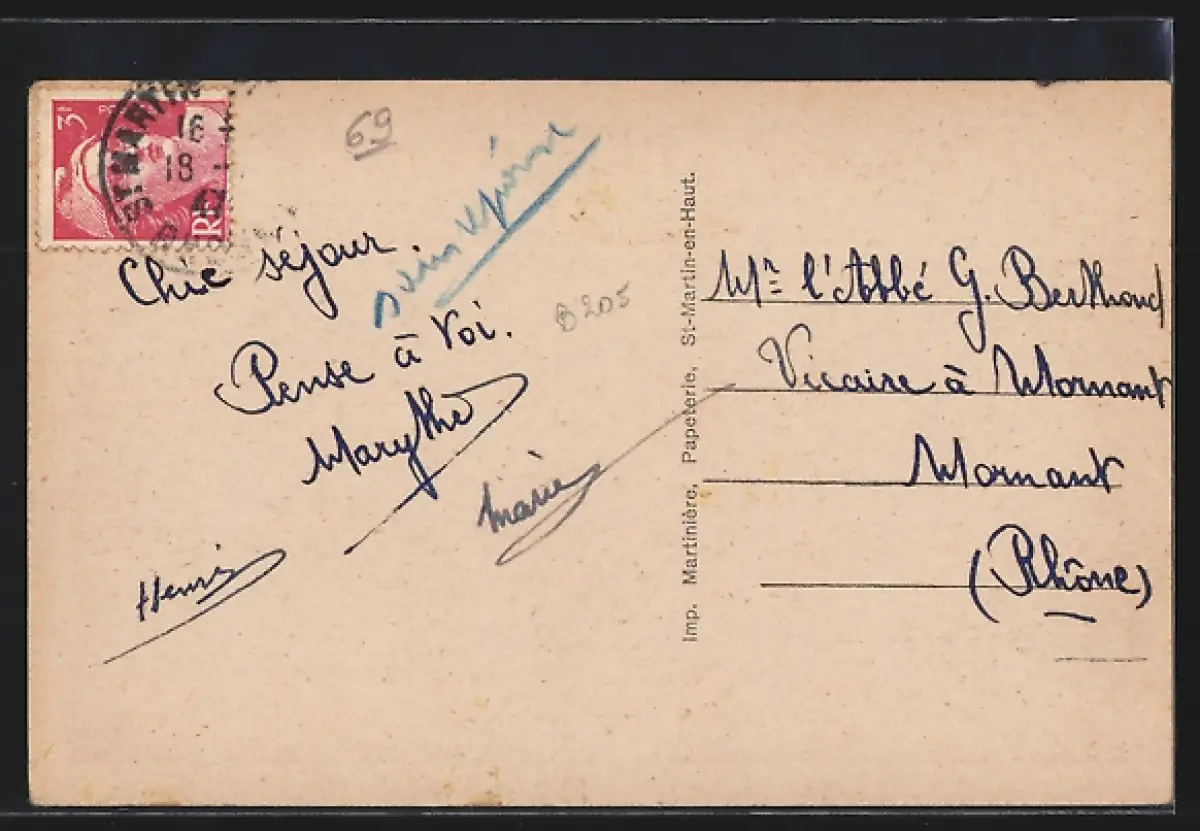 3F
RF
ST MARTIN
16
18 -
47
69
Chic séjour.
Pense à Toi.
MaryThé
Marie
Henri
B205
Imp. Martinière, Papeterie, St-Martin-en-Haut.
Mr l'Abbé G. Berthoud
Vicaire à Mornant
Mornant
(Rhône)